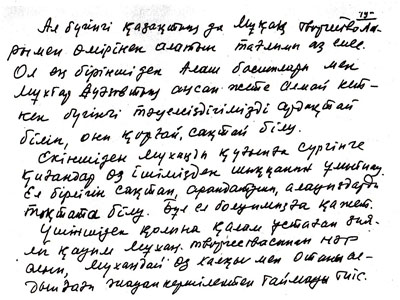 Ал бүгінгі қазақтың да Мұқаң творчествола-
рымен өмірінен алатын тағлымы аз емес.
Ол ең біріншіден Алаш басшылары мен
Мұхтар Ауэзовтың аңсап жете алмай кет-
кен бүгінгі тәуелсіздігімізді ардақтай
біліп, оны қорғай, сақтай білу.
Екіншіден Мұхаңды құғында сүргінге
қиғандар өз ішімізден шыққанын ұмытпау.
Ел бірлігін сақтап, арандатпай, алауыздарды
тоқтата білу. Бұл ел болуымызға қажет.
Үшіншіден қолына қалам ұстаған зия-
лы қауым Мұхаң творчествасынан нәр
алып, Мұхаңдай өз халқы мен Отаны ал-
дындағы жауапкершіліктен таймауы тиіс.